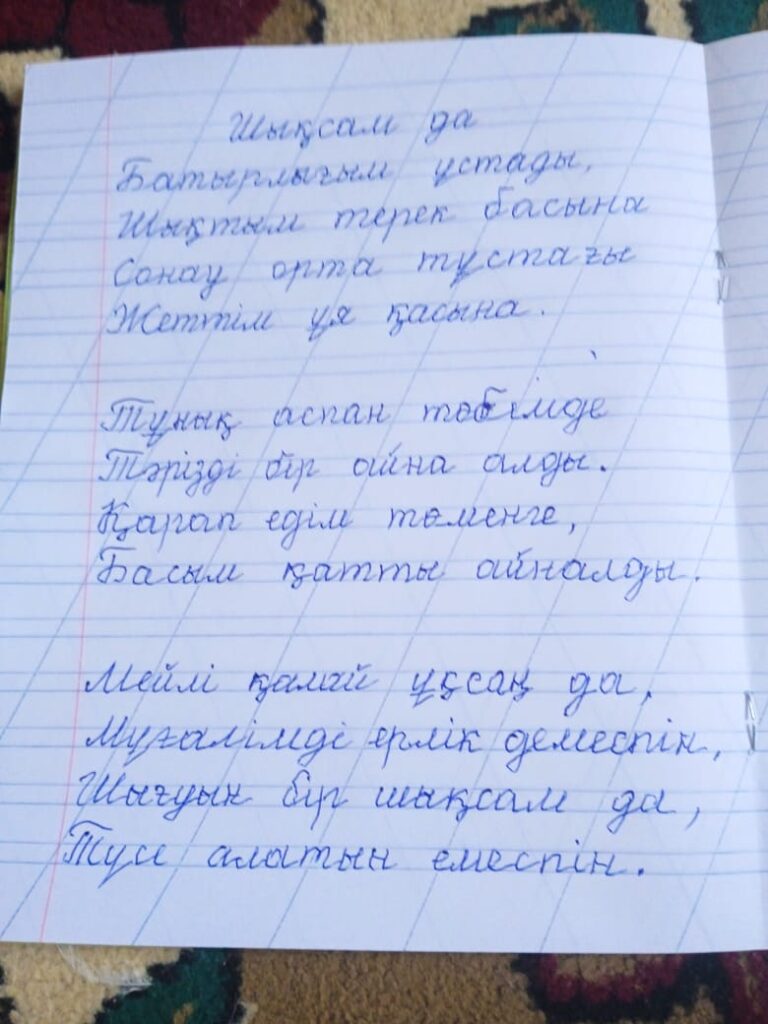 Шықсам да
Батырлығым ұстады,
Шықтым терек басына
Сонау орта тұстағы
Жеттім ұя қасына.
Тұнық аспан төбімде
Тәрізді бір айна алды.
Қарап едім төменге,
Басым қатты айналды.
Мейлі қалай ұқсаң да,
Мұғалімді ерлік демеспін,
Шығуын бір шықсам да,
Түсе алатын емеспін.